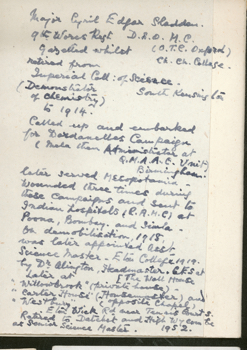 Major Cyril Edgar Sladden.
9th Worcs Regt D.S.O. M.C.
Gazetted whilst (O.T.C. Oxford)
retired from Ch. Ch. College.
Imperial Coll: of Science.
(Demonstrator South Kensington
of Chemistry)
to 1914.
Called up and embarked
for Dardanelles Campaign
(Mela then Administrator at
Q.M.A.A.C. Unit)
Birmingham.
later served Mesopotamia.
Wounded three times during
these campaigns and sent to
Indian Hospitals (R.A.M.C) at
Poona, Bombay. and Simla.
On demobilisation, 1918,
was later appointed Asst
Science Master. Eton College 1919.
by Dr Alington Headmaster.
later at The Wall House
Willowbrook (private house) and
Carter House (Housemaster) and
Westbury. opposite Career
Eton Wick Rd near Tennis Courts.
Retired to Datchet and High Wycombe
as Senior Science Master. 1952.